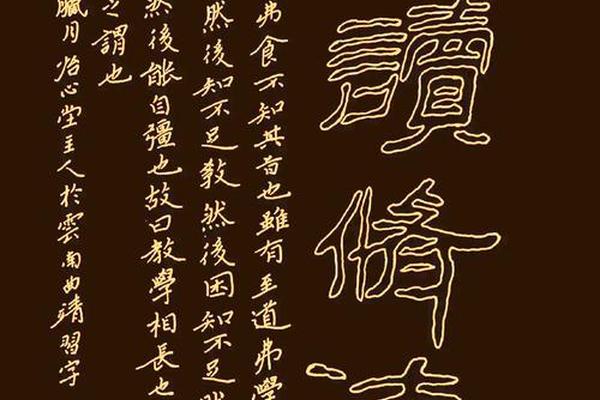 讀脩
弗食不知其旨也雖有至道弗學
然後知不足教然後困知不足然
然後能自彊也故曰教學相長也
之謂也
臘月怡心堂主人於雲南曲靖習字